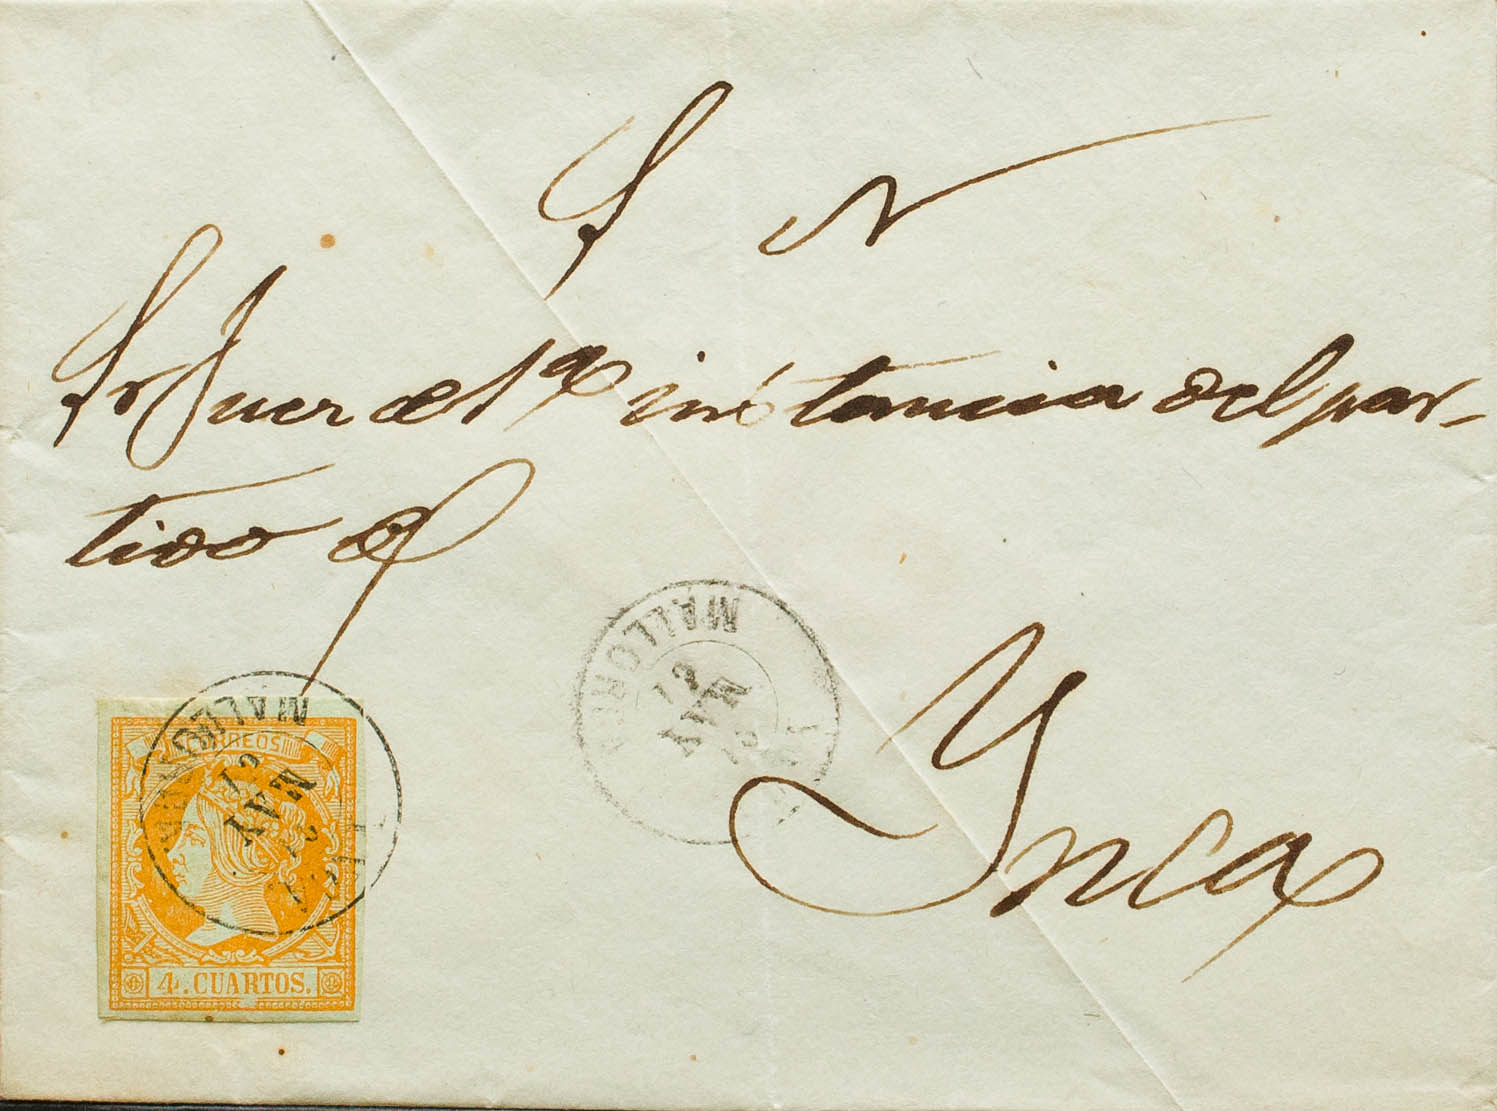 S N
Sr Juez de 1ª instancia del par-
tido de
Ynca
MALLORCA
MAY
CORREOS
MALLORCA
MAY
4. CUARTOS.